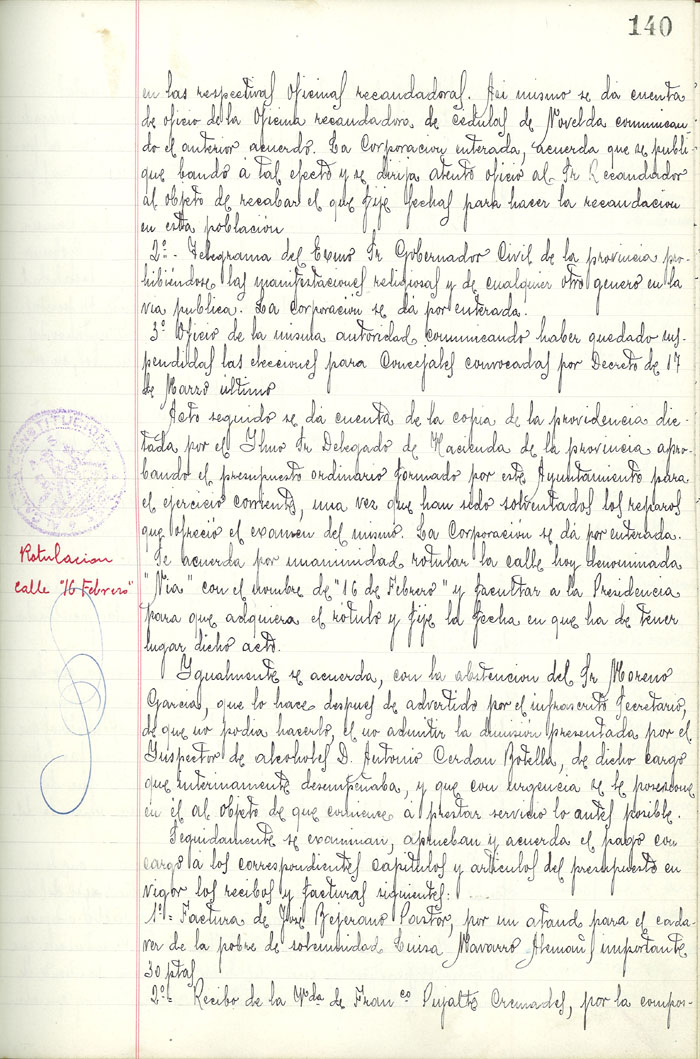 140
en las respectivas Oficinas recaudadoras. Asi mismo se dá cuenta
de oficio de la Oficina recaudadora de cedulas de Novelda comunican
do el anterior acuerdo. La Corporacion enterada, acuerda que se publi-
que bando á tal efecto y se dirija atento oficio al Sr Recaudador
al objeto de recabar el que fije fechas para hacer la recaudacion
en esta poblacion
2º - Telegrama del Exmo Sr Gobernador Civil de la provincia pro-
hibiendose las manifestaciones religiosas y de cualquier otro genero en la
via publica. La corporacion se dá por enterada.
3º Oficio de la misma autoridad comunicando haber quedado sus-
pendidas las elecciones para Concejales convocadas por Decreto de 17
de Marzo ultimo
Acto seguido se dá cuenta de la copia de la providencia dic-
tada por el Ylmo Sr Delegado de Hacienda de la provincia apro-
bando el presupuesto ordinario formado por este Ayuntamiento para
el ejercicio corriente, una vez que han sido solventados los reparos
que ofreció el examen del mismo. La Corporacion se dá por enterada.
Rotulacion
calle "16 Febrero"
Se acuerda por unanimidad rotular la calle hoy denominada
"Nia" con el nombre de "16 de Febrero" y facultar a la Presidencia
para que adquiera el rótulo y fije la fecha en que ha de tener
lugar dicho acto.
Ygualmente se acuerda, con la abstencion del Sr Moreno
Garcia, que lo hace despues de advertido por el infrascrito Secretario,
de que no podia hacerlo, el no admitir la dimision presentada por el
Ynspector de alcoholes D. Antonio Cerdan Botella, de dicho cargo
que interinamente desempeñaba, y que con urgencia se le posesione
en él al objeto de que comience á prestar servicio lo antes posible.
Seguidamente se examinan, aprueban y acuerda el pago con
cargo a los correspondientes capitulos y articulos del presupuesto en
vigor los recibos y facturas siguientes:
1º= Factura de Jose Bejerano Pastor, por un ataud para el cada-
ver de la pobre de solemnidad Luisa Navarro Alemañ, importante
30 ptas
2º= Recibo de la Vda de Franco Pujalte Cremades, por la compos-